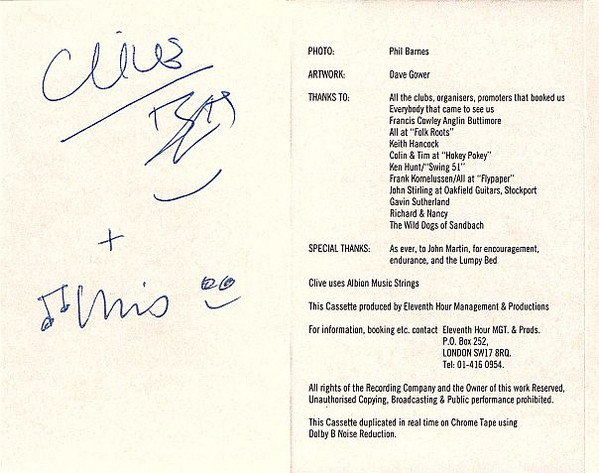 Clive
+
Chris
PHOTO: Phil Barnes
ARTWORK: Dave Gower
THANKS TO: All the clubs, organisers, promoters that booked us
Everybody that came to see us
Francis Cowley Anglin Buttimore
All at "Folk Roots"
Keith Hancock
Colin & Tim at "Hokey Pokey"
Ken Hunt/"Swing 51"
Frank Komelussen/All at "Flypaper"
John Stirling at Oakfield Guitars, Stockport
Gavin Sutherland
Richard & Nancy
The Wild Dogs of Sandbach
SPECIAL THANKS: As ever, to John Martin, for encouragement,
endurance, and the Lumpy Bed
Clive uses Albion Music Strings
This Cassette produced by Eleventh Hour Management & Productions
For information, booking etc. contact Eleventh Hour MGT. & Prods.
P.O. Box 252,
LONDON SW17 8RQ.
Tel: 01-416 0954.
All rights of the Recording Company and the Owner of this work Reserved,
Unauthorised Copying, Broadcasting & Public performance prohibited.
This Cassette duplicated in real time on Chrome Tape using
Dolby B Noise Reduction.